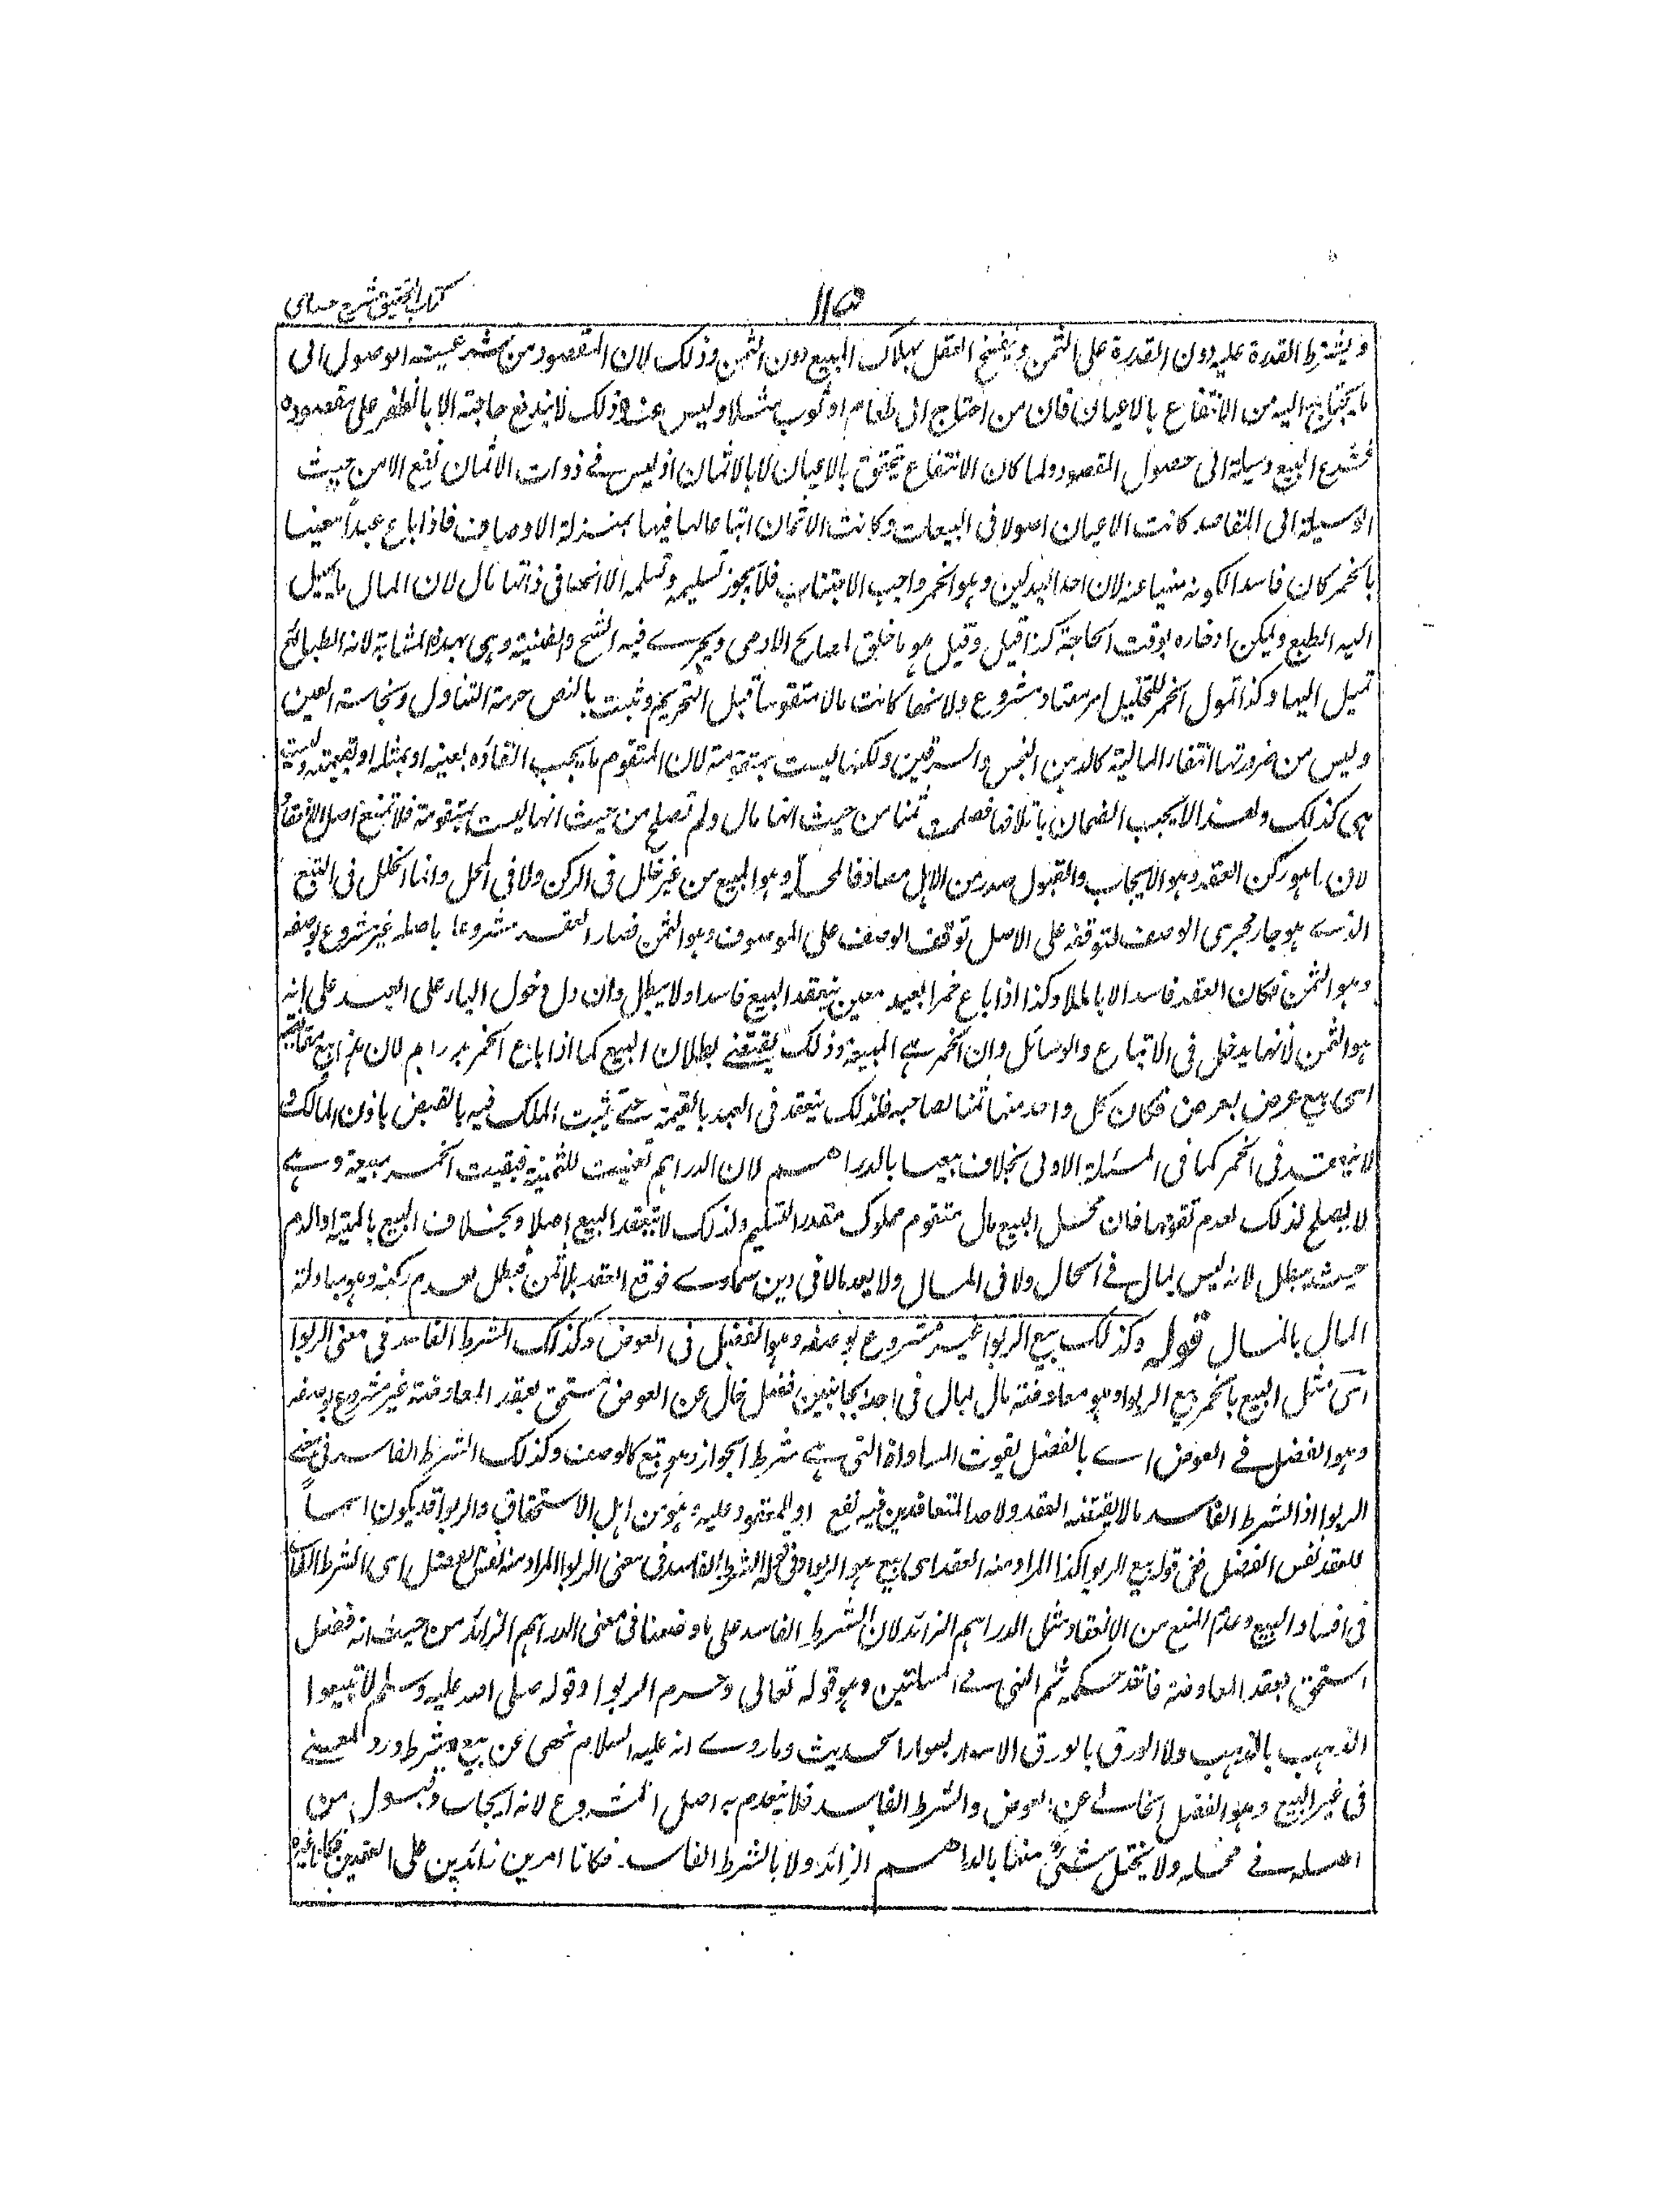 كتاب التحقيق شرح حسامى
١١٥
ويشترط القدرة عليه دون القدرة على الثمن وينفسخ العقل بهلاك المبيع دون الثمن وذلك لان المقصود من شرعيته الوصول الى
ما يحتاج اليه من الانتفاع بالاعيان فان من احتاج الى طعام او ثوب مثلا وليس عنده ذلك لا يندفع حاجته الا بالظفر على مقصوده
فشرع البيع وسيلة الى حصول المقصود ولما كان الانتفاع يتحقق بالاعيان لا بالاثمان اذ ليس فى ذوات الاثمان نفع الا من حيث
الوسيلة الى المقاصد كانت الاعيان اصولا فى البيعات وكانت الاثمان اتباعا لها فيها بمنزلة الاوصاف فاذا باع عبداً معينا
بالخمر كان فاسدا لكونه منهيا عنه لان احد البدلين وهو الخمر واجب الاجتناب فلا يجوز تسليمه وتسلمه الا انها فى ذاتها مال لان المال ما يميل
اليه الطبع ويمكن ادخاره لوقت الحاجة كذا قيل وقيل هو ما خلق لمصالح الادمى ويجرى فيه الشح والضنية وهى بهذه المثابة لانه الطبائع
تميل اليها وكذا تمول الخمر للتخليل امر معتاد مشروع ولانها كانت مالا متقوما قبل التحريم وثبت بالنص حرمة التناول ونجاسة العين
وليس من ضرورتها انتفاء المالية كالدهن النجس والسرقين ولكنها ليست بمتقومة لان المتقوم ما يجب ابقاؤه بعينه او بمثله او بقيمته وليست
هى كذلك ولهذا لا يجب الضمان باتلافها فصلحت ثمنا من حيث انها مال ولم تصلح من حيث انها ليست بمتقومة فلا تمنع اصل الانعقاد
لان ما هو ركن العقد وهو الايجاب والقبول صدر من الاهل مضافا لمحله وهو المبيع من غير خلل فى الركن ولا فى المحل وانما الخلل فى التبع
الذى هو جار مجرى الوصف لتوقفه على الاصل توقف الوصف على الموصوف وهو الثمن فصار العقد مشروعا باصله غير مشروع بوصفه
وهو الثمن فكان العقد فاسدا لا باطلا وكذا اذا باع خمرا بعبد معين ينعقد البيع فاسدا ولا يبطل وان دل دخول الباء على العبد على انه
هو الثمن لانها يدخل فى الاتباع والوسائل وان الخمر هى المبيعة وذلك يقتضى بطلان البيع كما اذا باع الخمر بدراهم لان هذا بيع مقايضة
اى بيع عرض بعرض فكان كل واحد منهما ثمنا لصاحبه فلذلك ينعقد فى العبد بالقيمة حتى يثبت الملك فيه بالقبض باذن المالك و
لا ينعقد فى الخمر كما فى المسئلة الاولى بخلاف بيعها بالدراهم لان الدراهم تعينت للثمنية فبقيت الخمر مبيعة وهى
لا يصلح لذلك لعدم تقومها فان محل البيع مال متقوم مملوك مقدور التسليم ولذلك لا ينعقد البيع اصلا وبخلاف البيع بالميتة او الدم
حيث يبطل لانه ليس بمال فى الحال ولا فى المال ولا يعد مالا فى دين سماوى فوقع العقد بلا ثمن فبطل لعدم ركنه وهو مبادلة
المال بالمال قوله وكذلك بيع الربوا غير مشروع بوصفه وهو الفضل فى العوض وكذلك الشرط الفاسد فى معنى الربوا
اى مثل البيع بالخمر بيع الربوا وهو معاوضة مال بمال فى احد الجانبين فضل خال عن العوض مستحق بعقد المعاوضة غير مشروع بوصفه
وهو الفضل فى العوض اى بالفضل يفوت المساواة التى هى شرط الجواز وهو تبع كالوصف وكذلك الشرط الفاسد فى معنى
الربوا اذ الشرط الفاسد ما لا يقتضه العقد ولاحد المتعاقدين فيه نفع او للمعقود عليه وهو من اهل الاستحقاق والربوا قد يكون اسماً
للعقد نفس الفضل ففى قوله بيع الربوا كذا المراد منه العقد اى بيع هو الربوا وفى قوله الشرط الفاسد فى معنى الربوا المراد منه نفس الفضل اى الشرط الفاسد
فى افساد البيع وعدم المنع من الانعقاد مثل الدراهم الزائد لان الشرط الفاسد على ما وصفنا فى معنى الدراهم الزائد من حيث انه فضل
استحق بعقد المعاوضة فاتخذ حكمه ثم النهى فى المسئلتين وهو قوله تعالى وحرم الربوا وقوله صلى الله عليه وسلم لا تبيعوا
الذهب بالذهب ولا الورق بالورق الا سواء بسواء الحديث وما روى انه عليه السلام نهى عن بيع وشرط ورد لمعنى
فى غير البيع وهو الفضل الخالى عن العوض والشرط الفاسد فلا ينعدم به اصل المشروع لانه ايجاب وقبول من
اهله فى محله ولا يختل شئ منهما بالدراهم الزائد ولا بالشرط الفاسد فكانا امرين زائدين على العقدين فكانا غيره